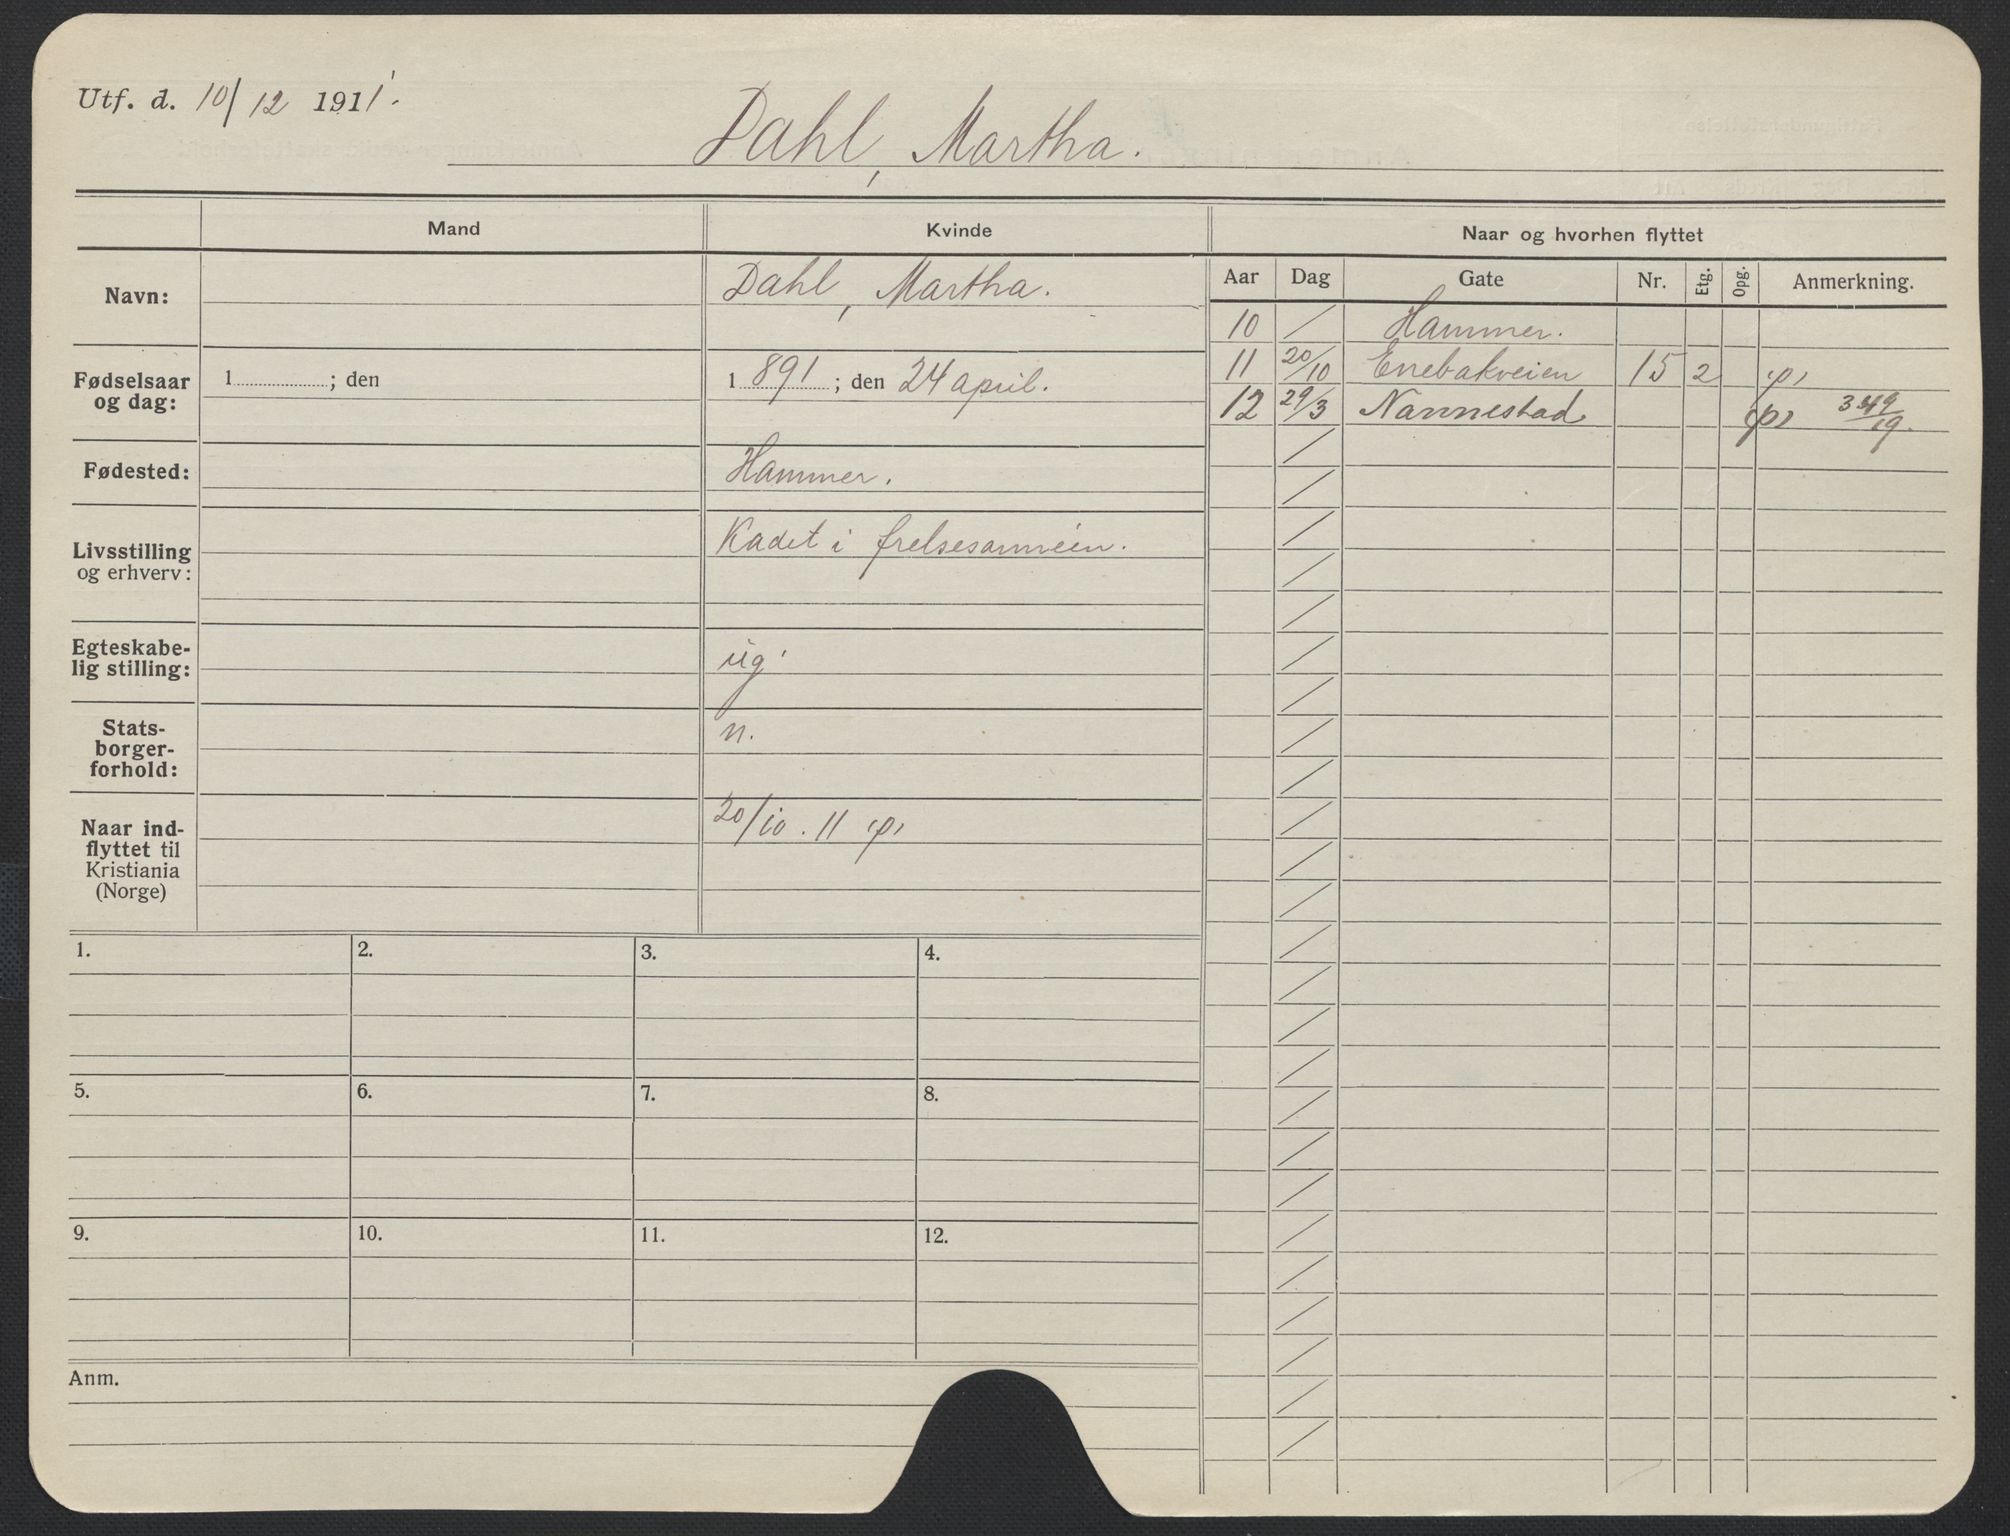 Utf. d. 10/12 1911.
Dahl, Martha.
Mand
Kvinde
Naar og hvorhen flyttet
Navn:
Dahl, Martha.
Aar Dag Gate Nr. Etg. Opg. Anmerkning.
10 Hammer.
11 20/10 Enebakveien 15 2 "p"
12 29/3 Nannestad "p"
Fødselsaar
og dag:
1 ; den
1 891 ; den 24 april.
Fødested:
Hammer.
Livsstilling
og erhverv:
Kadet i frelsesarméen.
Egteskabe-
lig stilling:
ug.
Stats-
borger-
forhold:
n.
Naar ind-
flyttet til
Kristiania
(Norge)
20/10. 11 "p"
1. 2. 3. 4.
5. 6. 7. 8.
9. 10. 11. 12.
Anm.